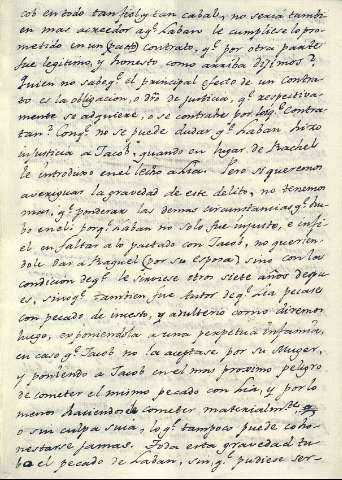 cob en todo tan fiel, y tan cabal, no seria tambi-
en mas acreedor a q.e Laban le cumpliese lo pro-
metido en un (pacto) contrato, q.e por otra parte
fue legitimo, y honesto como arriba dijimos?
Quien no sabe q.e el principal efecto de un contra-
to es la obligacion, o dro de justicia, q.e respectiva-
mente se adquiere, o se contrahe por los q.e contra-
tan? Con q.e no se puede dudar q.e Laban hizo
injusticia a Jacob, quando en lugar de Rachel
le introdujo en el lecho a Lia. Pero si queremos
averiguar la gravedad de este delito, no tenemos
mas, q.e ponderar las demas circunstancias q.e hu-
bo en el: porq.e Laban no solo fue injusto, e infi-
el en faltar a lo pactado con Jacob, no querien-
dole dar a Raquel (por su esposa) sino con la
condicion de q.e le sirviese otro siete años despu-
es, sino q.e tambien fue Autor de q.e Lia pecase
con pecado de incesto, y adulterio como diremos
luego, exponiendola a una perpetua infamia,
en caso q.e Jacob no la aceptase por su Muger,
y poniendo a Jacob en el mas proximo peligro
de cometer el mismo pecado con Lia, y por lo
menos haciendole cometer materialm.te
o sin culpa suia, lo q.e tampoco puede coho-
nestarse jamas. Toda esta gravedad tu-
bo el pecado de Laban, sin q.e pudiese ser-